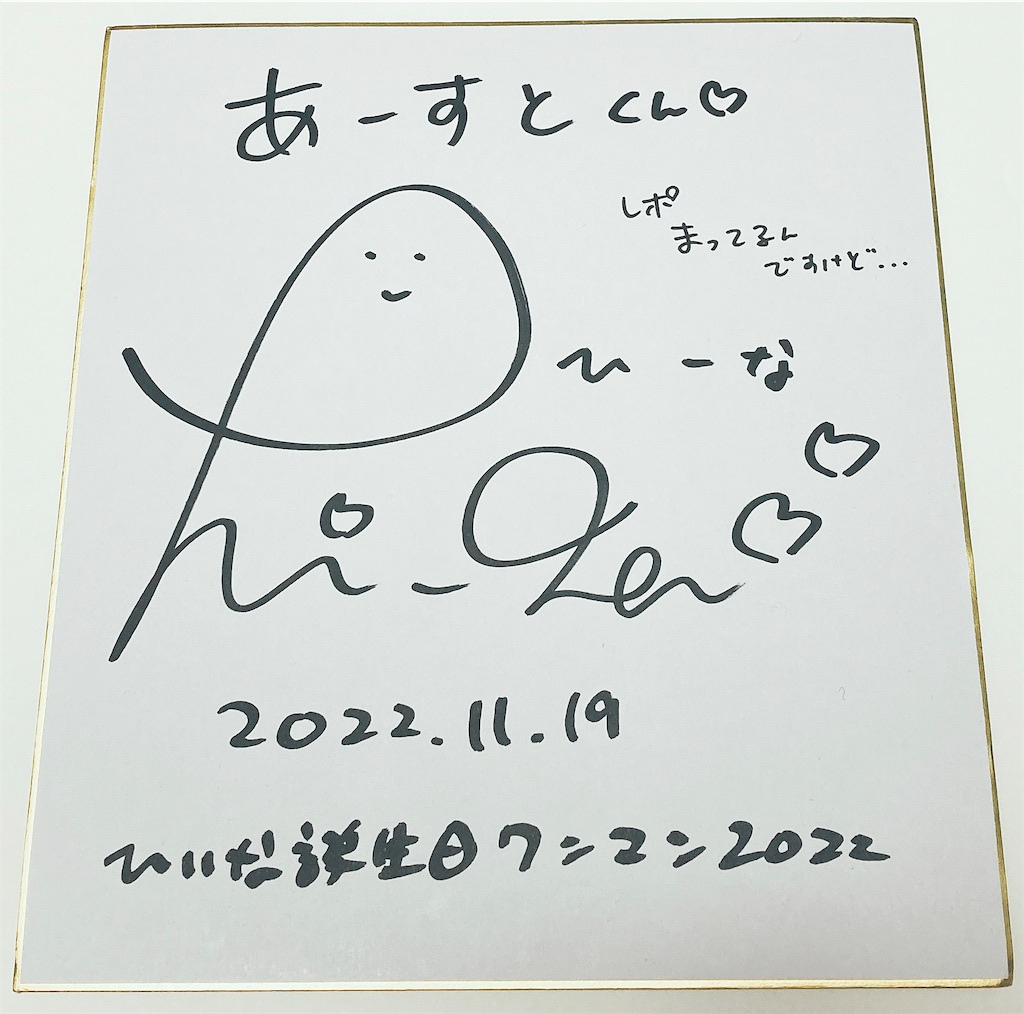 あーすとくん♡
レポ
まってるん
ですけど...
ひーな
hi-na
2022.11.19
ひいな誕生日ワンマン2022